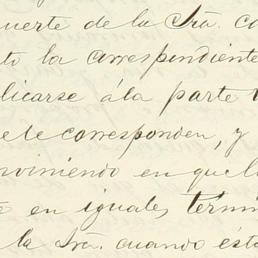 muerte de la Sra. co
to la correspondiente
licarse á la parte
le corresponden, y
nviniendo en que la
en iguales térmi
la Sra. cuando ésta